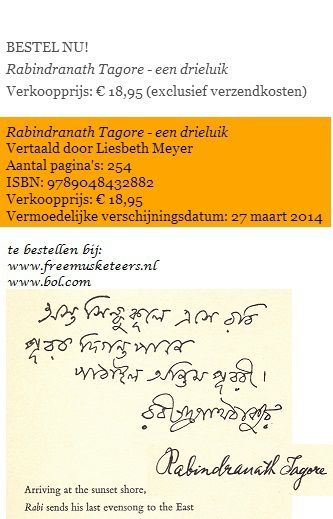 BESTEL NU!
Rabindranath Tagore - een drieluik
Verkoopprijs: € 18,95 (exclusief verzendkosten)
Rabindranath Tagore - een drieluik
Vertaald door Liesbeth Meyer
Aantal pagina's: 254
ISBN: 9789048432882
Verkoopprijs: € 18,95
Vermoedelijke verschijningsdatum: 27 maart 2014
te bestellen bij:
www.freemusketeers.nl
www.bol.com
অস্ত সিন্ধু কূলে এসে রবি
পূরব দিগন্ত পানে
পাঠাইল অন্তিম পূরবী।
রবীন্দ্রনাথ ঠাকুর
Rabindranath Tagore
Arriving at the sunset shore,
Rabi sends his last evensong to the East